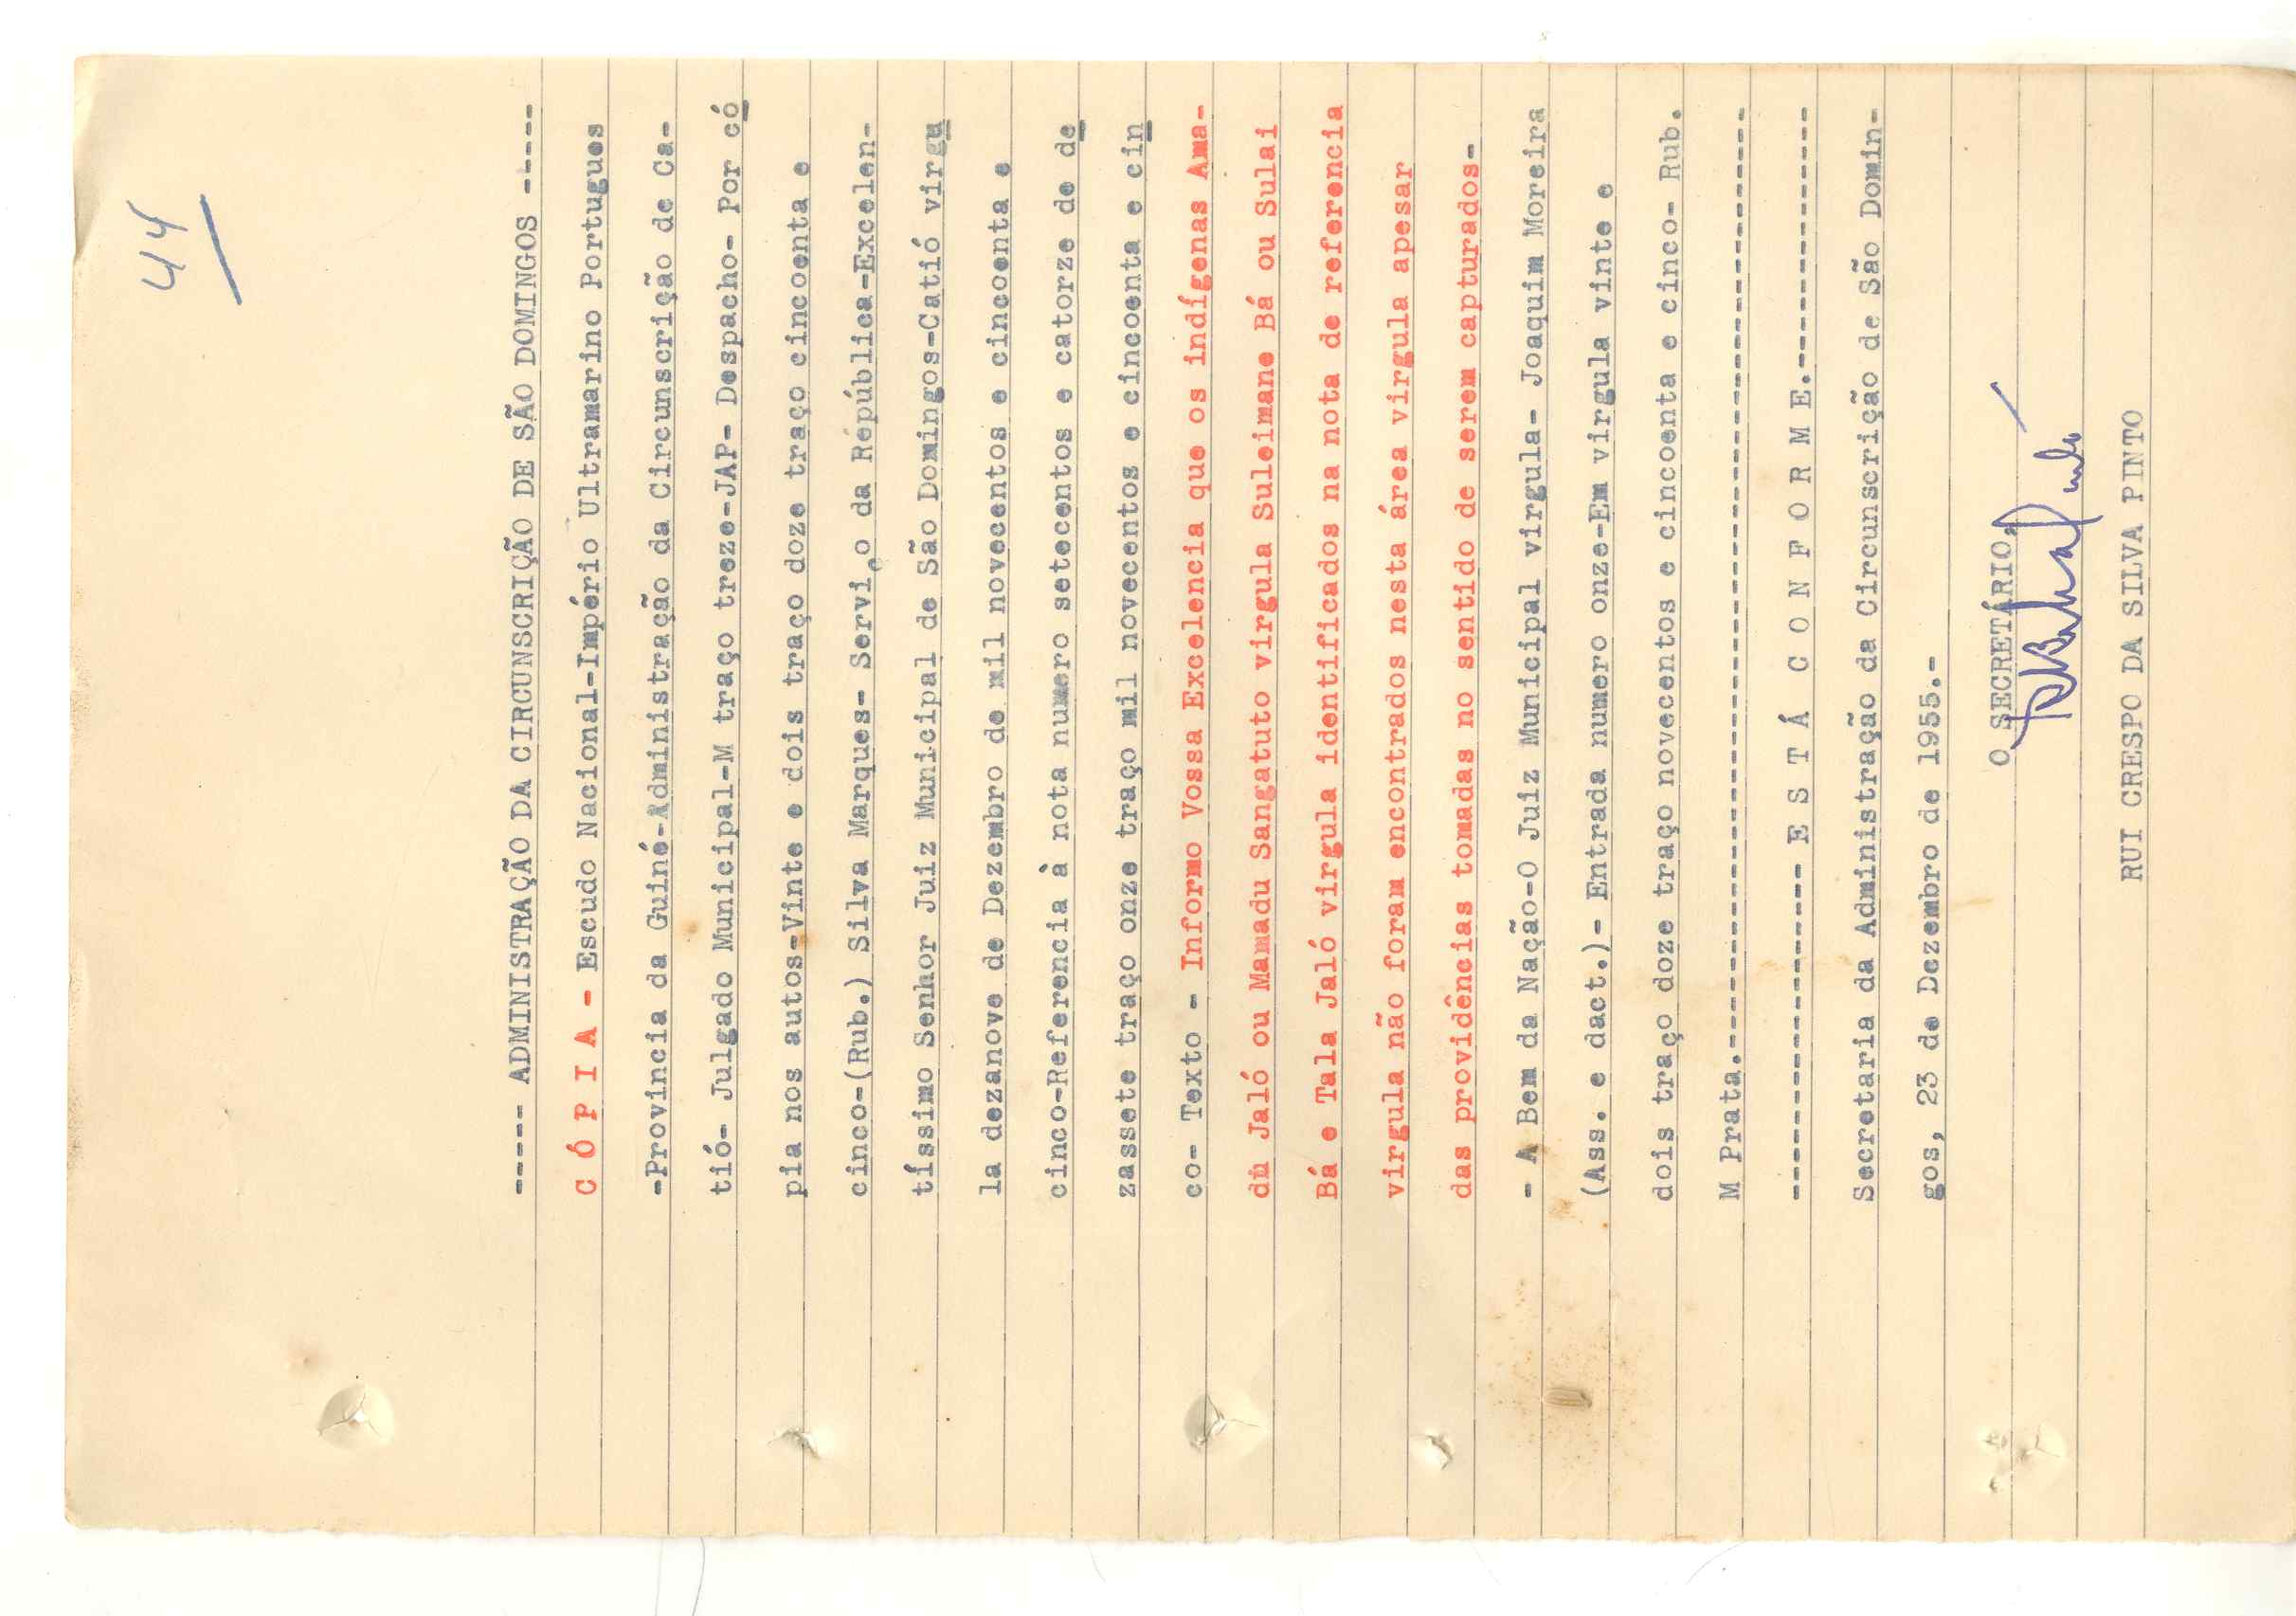 44
----- ADMINISTRAÇÃO DA CIRCUNSCRIÇÃO DE SÃO DOMINGOS -----
C Ó P I A - Escudo Nacional-Império Ultramarino Portugues
-Provincia da Guiné-Administração da Circunscrição de Ca-
tió- Julgado Municipal-M traço treze-JAP- Despacho- Por có
pia nos autos-Vinte e dois traço doze traço cincoenta e
cinco-(Rub.) Silva Marques- Serviço da Répública-Excelen-
tíssimo Senhor Juiz Municipal de São Domingos-Catió virgu
la dezanove de Dezembro de mil novecentos e cincoenta e
cinco-Referencia à nota numero setecentos e catorze de de
zassete traço onze traço mil novecentos e cincoenta e cin
co- Texto - Informo Vossa Excelencia que os indígenas Ama-
dú Jaló ou Mamadu Sangatuto virgula Suleimane Bá ou Sulai
Bá e Tala Jaló virgula identificados na nota de referencia
virgula não foram encontrados nesta área virgula apesar
das providências tomadas no sentido de serem capturados-
- A Bem da Nação-O Juiz Municipal virgula- Joaquim Moreira
(Ass. e dact.)- Entrada numero onze-Em virgula vinte e
dois traço doze traço novecentos e cincoenta e cinco- Rub.
M Prata.---------------------------------------------------
----------------- E S T Á C O N F O R M E.-----------------
Secretaria da Administração da Circunscrição de São Domin-
gos, 23 de Dezembro de 1955.-
O SECRETÁRIO,
RUI CRESPO DA SILVA PINTO